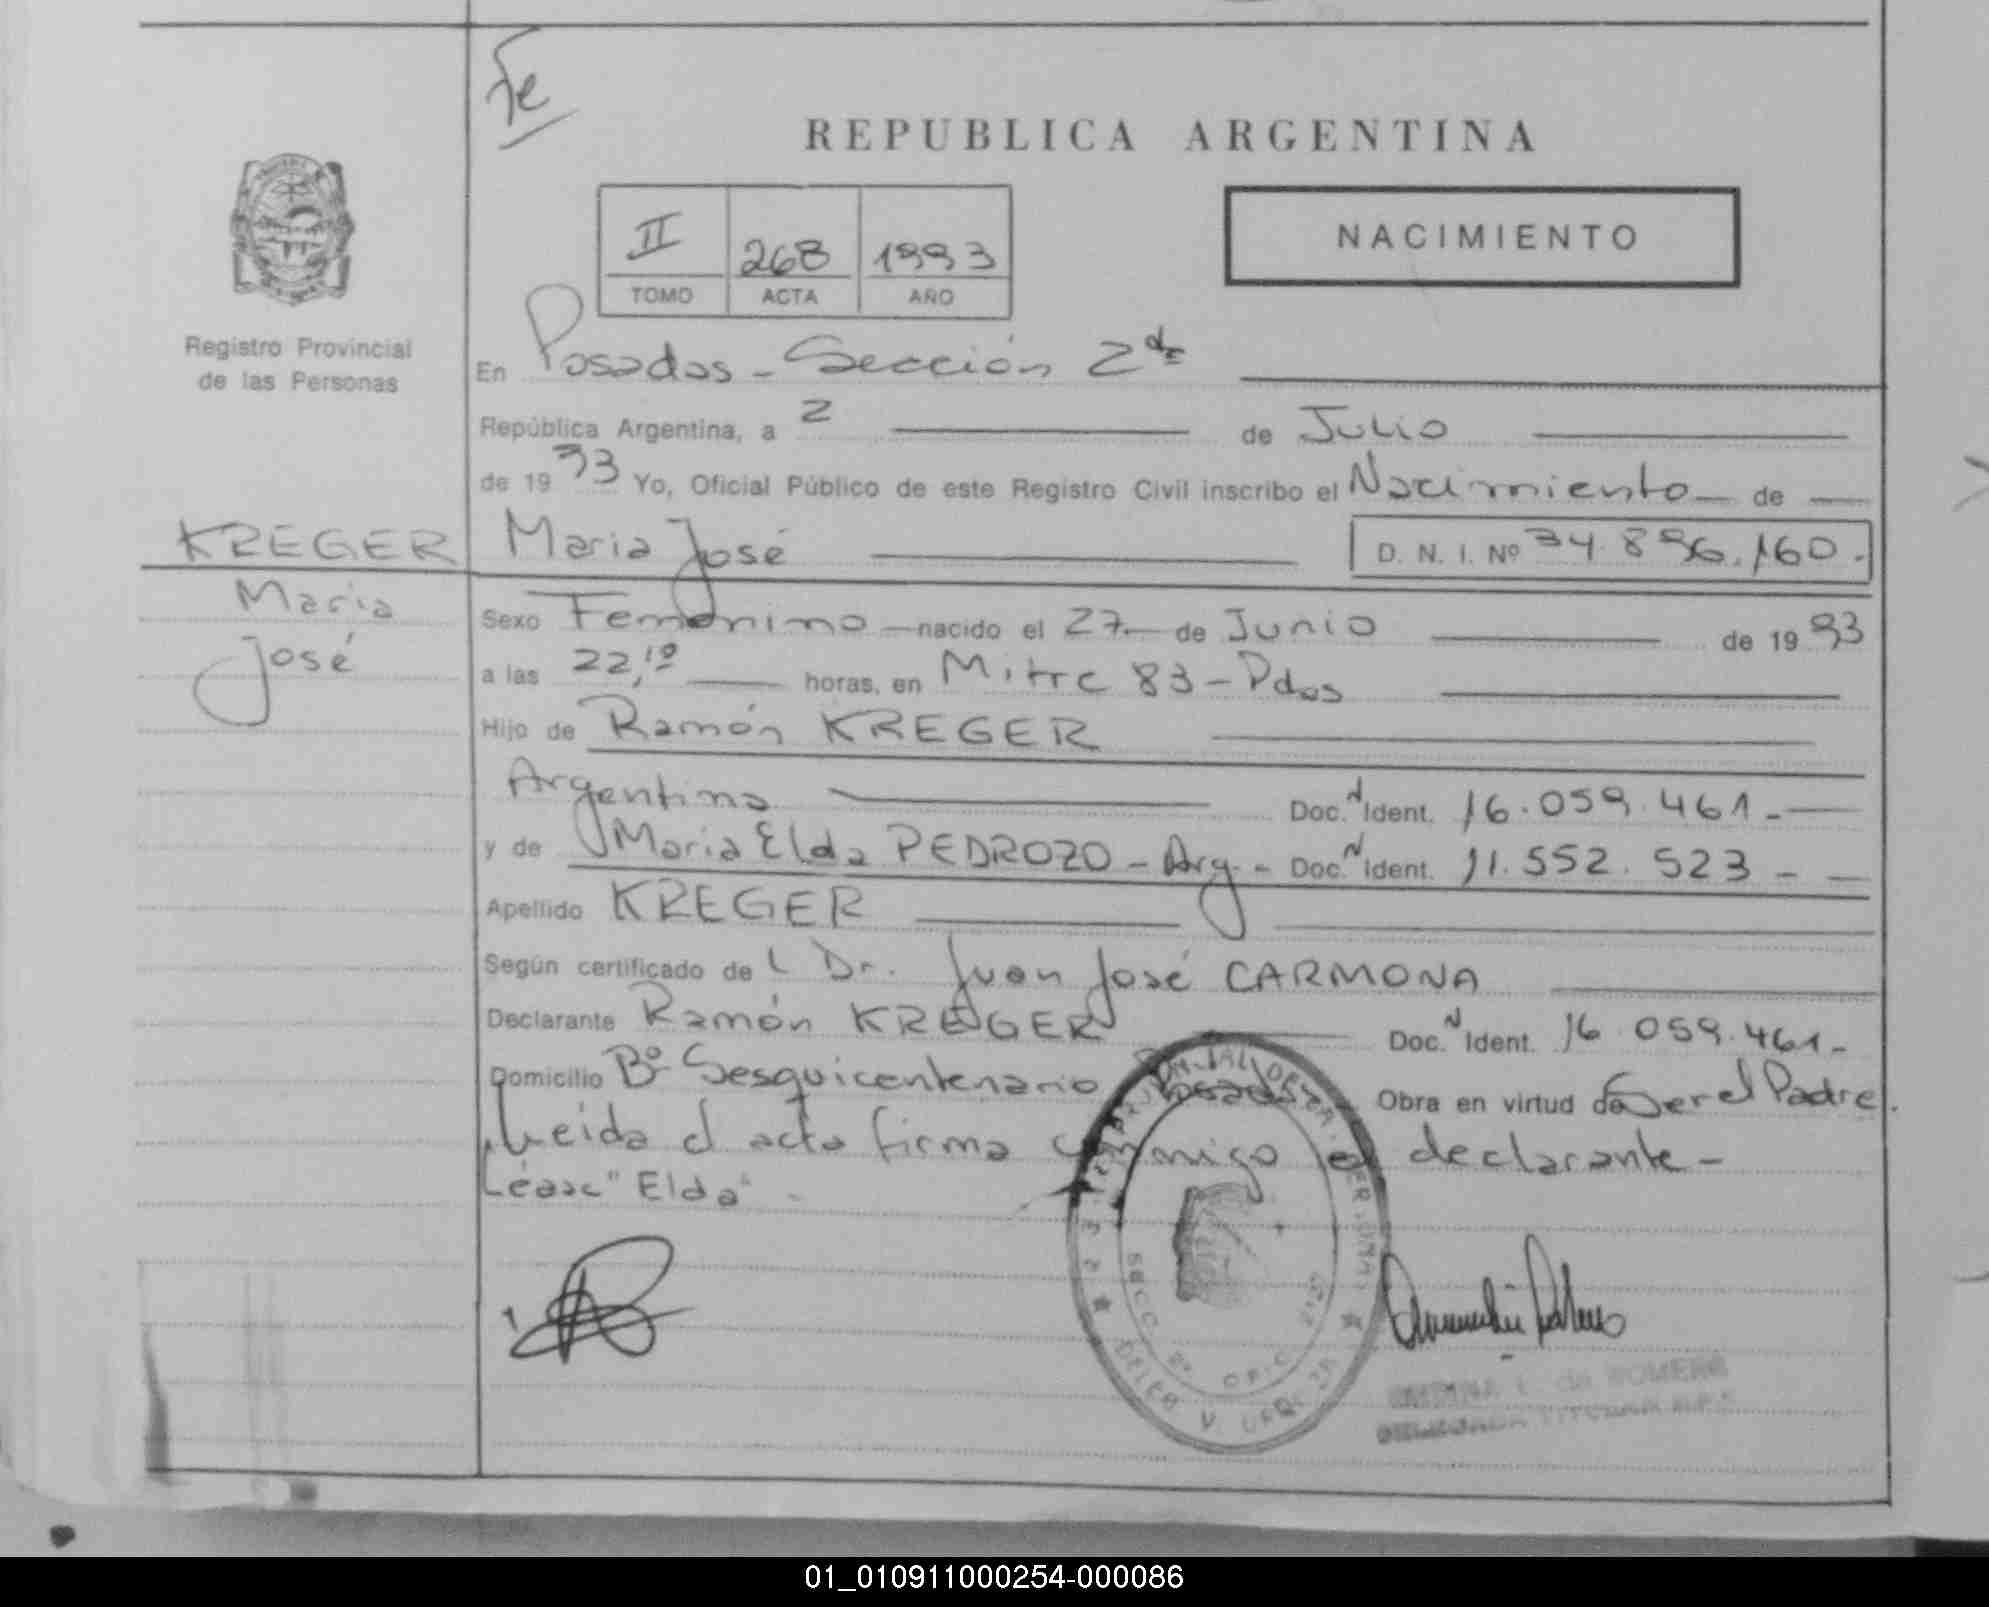 Fe
REPUBLICA ARGENTINA
II 268 1993
TOMO ACTA AÑO
NACIMIENTO
Registro Provincial
de las Personas
En Posadas - Sección 2da
República Argentina, a 2 de Julio
de 1993 Yo, Oficial Público de este Registro Civil inscribo el Nacimiento de
KREGER Maria José D. N. I. Nº 34.896.160.
Maria
José
Sexo Femenino nacido el 27 de Junio de 1993
a las 22,10 horas, en Mitre 83 - Pdas
Hijo de Ramón KREGER
Argentino Doc. N Ident. 16.059.461 -
y de Maria Elda PEDROZO - Arg - Doc. N Ident. 11.552.523 -
Apellido KREGER
Según certificado del Dr. Juan José CARMONA
Declarante Ramón KREGER Doc. N Ident. 16.059.461 -
Domicilio Bº Sesquicentenario Posadas Obra en virtud de Ser el Padre.
Leida el acta firma conmigo el declarante -
Léase "Elda" -
de ROMERO
DELEGADA TITULAR
01_010911000254-000086